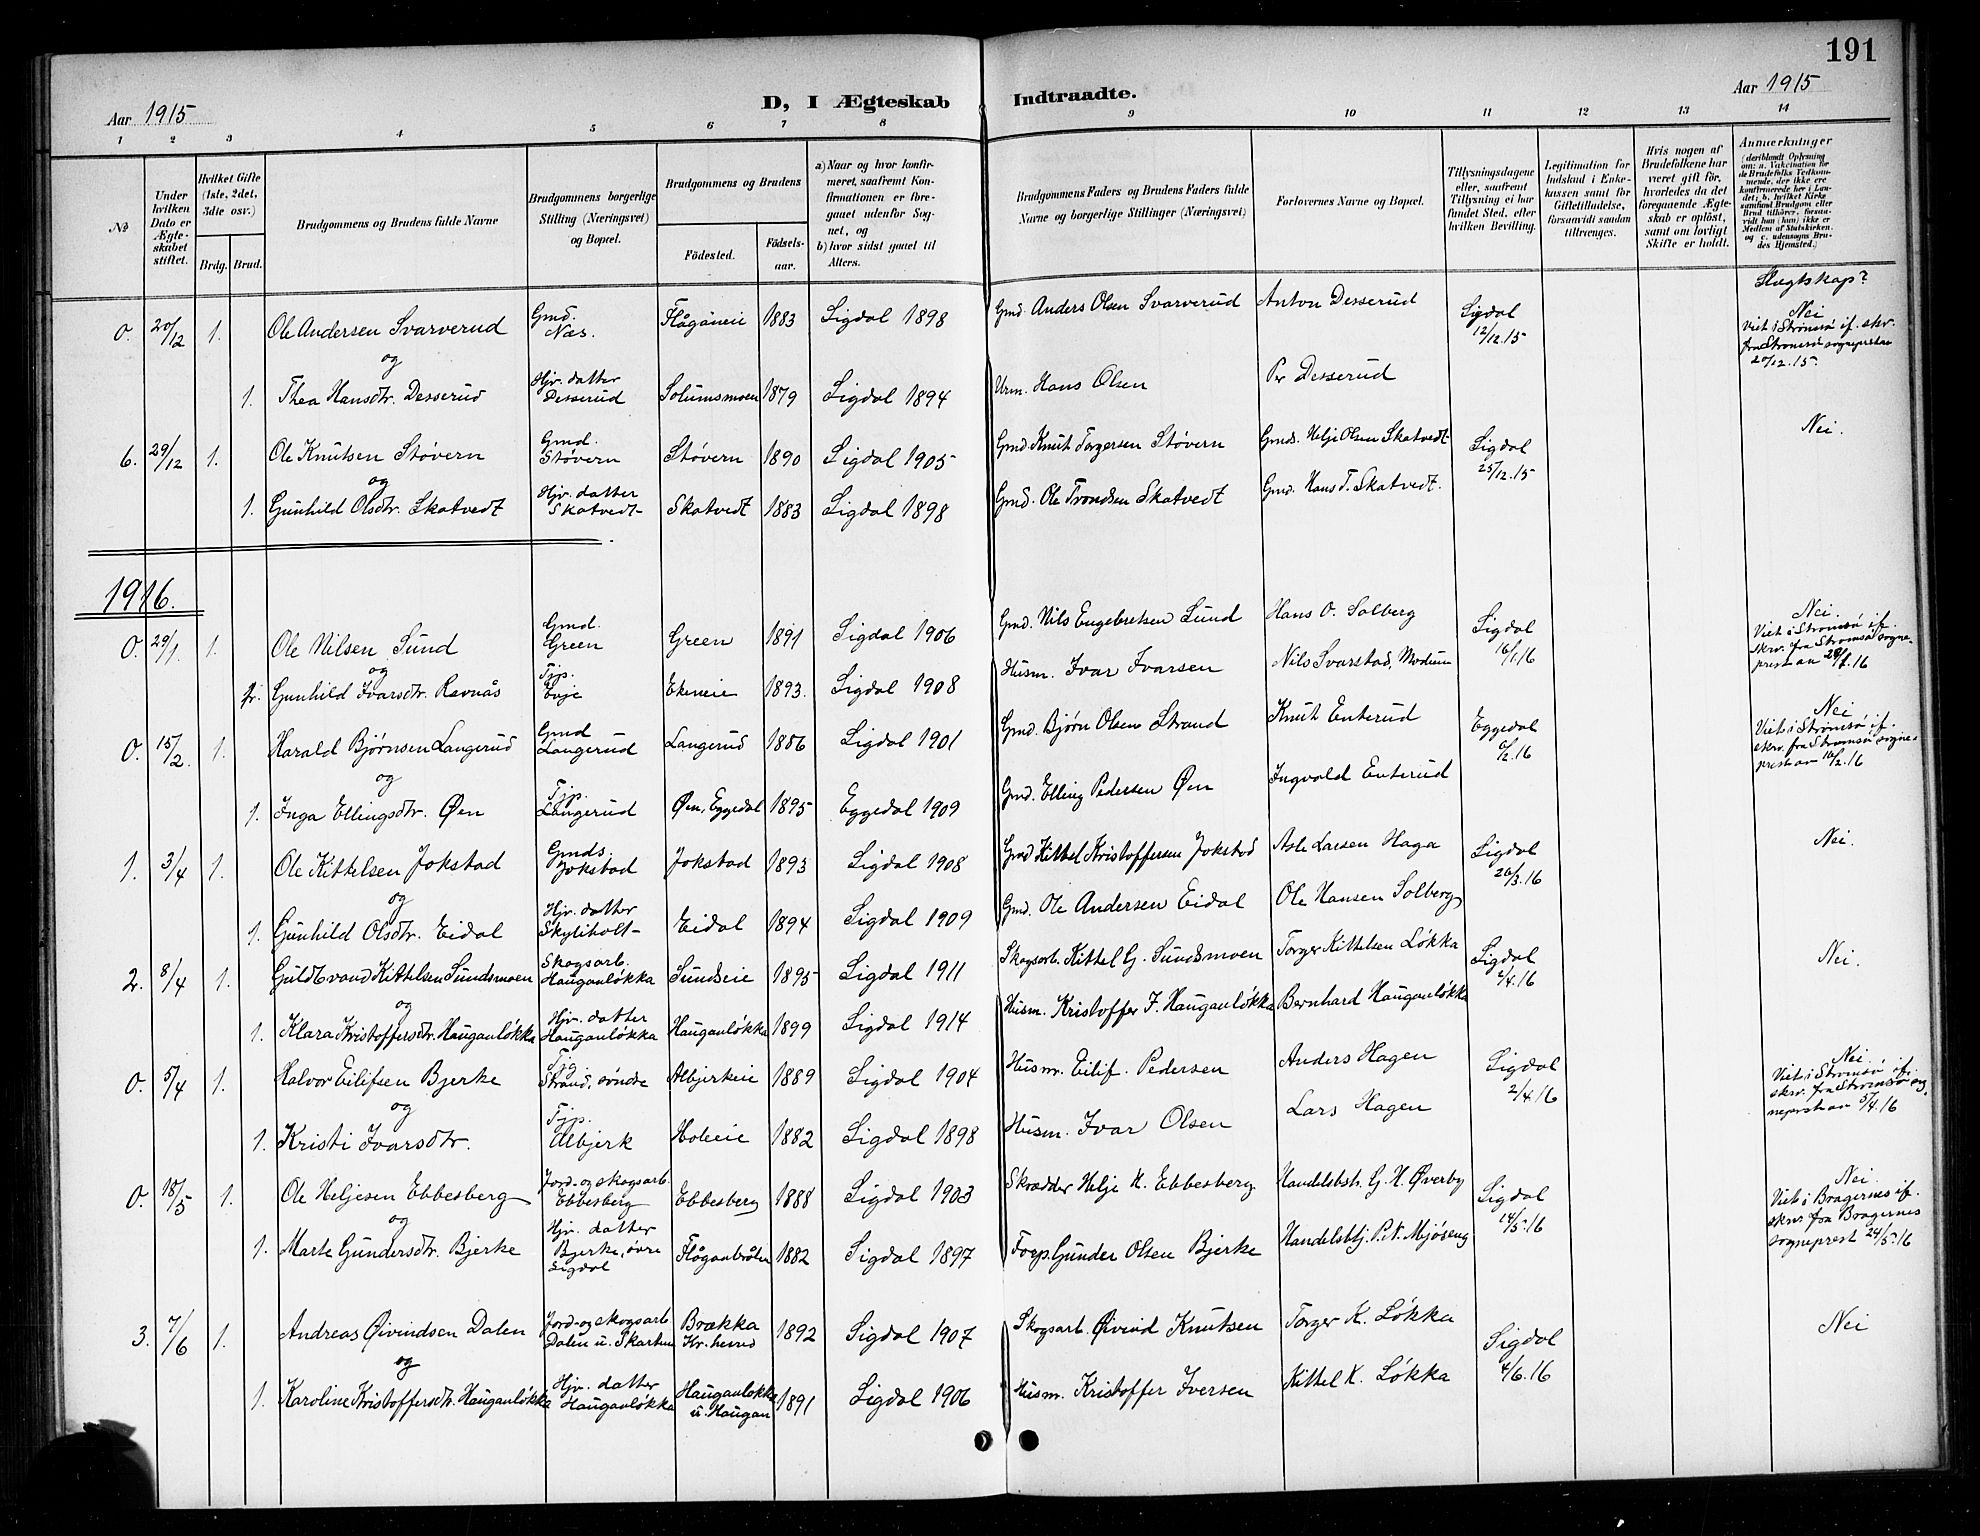 191
Aar 1915
D, I Ægteskab Indtraadte.
Aar 1915
1 2 3 4 5 6 7 8 9 10 11 12 13 14
No
Under hvilken Dato er Ægteskabet stiftet.
Hvilket Gifte (1ste, 2det, 3die osv.)
Brdg. Brud.
Brudgommens og Brudens fulde Navne
Brudgommens borgerlige Stilling (Næringsvei) og Bopæl.
Brudgommens og Brudens
Födested.
Födsels-aar.
a) Naar og hvor konfirmeret, saafremt Konfirmationen er foregaaet udenfor Sognet, og
b) hvor sidst gaaet til Alters.
Brudgommens Faders og Brudens Faders fulde Navne og borgerlige Stillinger (Næringsvei)
Forlovernes Navne og Bopæl.
Tillysningsdagene eller, saafremt Tillysning ei har fundet Sted, efter hvilken Bevilling.
Legitimation for Indskud i Enkekassen samt for Giftetilladelse, forsaavidt saadan tiltrænges.
Hvis nogen af Brudefolkene har været gift før, hvorledes da det foregaaende Ægteskab er opløst, samt om lovligt Skifte er holdt.
Anmærkninger
(deriblandt Oplysning om: a. Vakcination for de Brudefolks Vedkommende, der ikke ere konfirmerede her i Landet; b. hvilket Kirkesamfund Brudgom eller Brud tilhörer, forsaavidt han (hun) ikke er Medlem af Statskirken, og c. udensogns Brudes Hjemsted.)
Slægtskap?
0. 20/12 1. Ole Andersen Svarverud Gmd. Næs. Flågåneie 1883 Sigdal 1898 Gmd. Anders Olsen Svarverud Anton Desserud Sigdal 12/12.15 Nei
Viet i Strømsø if. skr. fra Strømsø sogneprest av 20/12.15.
og
1. Thea Hansdtr. Desserud Hjv. datter Desserud Solumsmoen 1879 Sigdal 1894 Urm. Hans Olsen Per Desserud
6. 29/12 1. Ole Knutsen Støvern Gmd. Støvern Støvern 1890 Sigdal 1905 Gmd. Knut Torgersen Støvern Gmds. Helje Olsen Skatvedt Sigdal 25/12.15 Nei.
og
1. Gunhild Olsdtr. Skatvedt Hjv. datter Skatvedt Skatvedt 1883 Sigdal 1898 Gmd. Ole Trondsen Skatvedt Gmd. Hans T. Skatvedt.
1916.
0. 29/1. 1. Ole Nilsen Sund Gmd. Green Green 1891 Sigdal 1906 Gmd. Nils Engebretsen Sund Hans O. Solberg Sigdal 16/1.16 Nei.
Viet i Strømsø if. skr. fra Strømsø sogneprest av 28/1.16
og
1. Gunhild Ivarsdtr. Ravnås Tjp. Evje Ekeneie 1893. Sigdal 1908 Husm. Ivar Ivarsen Nils Svarstad, Modum
0. 15/2. 1. Harald Bjørnsen Langerud Gmd Langerud Langerud 1886 Sigdal 1901 Gmd. Bjørn Olsen Strand Knut Enterud Eggedal 6/2.16 Nei
Viet i Strømsø if. skr. fra Strømsø sogneprest av 16/2.16
og
1. Inga Ellingsdtr. Øen Tjp. Langerud Øen, Eggedal 1895 Eggedal 1909 Gmd. Elling Pedersen Øen Ingvald Enterud
1. 3/4 1. Ole Kittelsen Jokstad Gmds. Jokstad Jokstad 1893 Sigdal 1908 Gmd Kittel Kristoffersen Jokstad Asle Larsen Haga Sigdal 26/3.16 Nei.
og
1. Gunhild Olsdtr. Eidal Hjv. datter Skyliholt Eidal 1894 Sigdal 1909 Gmd. Ole Andersen Eidal Ole Hansen Solberg
2. 8/4 1. Guldbrand Kittelsen Sundsmoen Skogsarb. Hauganløkka Sundseie 1895 Sigdal 1911 Skogsarb. Kittel G. Sundsmoen Torger Kittelsen Løkka Sigdal 2/4.16 Nei.
og
1. Klara Kristoffersdtr. Hauganløkka Hjv. datter Hauganløkka Hauganløkka 1899 Sigdal 1914 Husm. Kristoffer F. Hauganløkka Bernhard Hauganløkka
0. 5/4 1. Halvor Eilifsen Bjerke Tjg. Strand, søndre Albjerkeie 1889 Sigdal 1904 Husm. Eilif. Pedersen Anders Hagen Sigdal 2/4.16 Nei
Viet i Strømsø if. skr. fra Strømsø sogneprest av 5/4.16
og
1. Kristi Ivarsdtr. Tjp. Albjerk Holeeie 1882 Sigdal 1898 Husm. Ivar Olsen Lars Hagen
0. 18/5 1. Ole Heljesen Ebbesberg Jord- og skogsarb. Ebbesberg Ebbesberg 1888 Sigdal 1903 Skrædder Helje K. Ebbesberg Handelsbst. G. H. Øverby Sigdal 14/5.16 Nei.
Viet i Bragernes if. skr. fra Bragernes sogneprest 24/5.16
og
1. Marte Gundersdtr. Bjerke Hjv. datter Bjerke, øvre Sigdal Flåganbråten 1882 Sigdal 1897 Gunder Olsen Bjerke Handelsbtj. P. N. Mjøseng
3. 7/6 1. Andreas Øivindsen Dalen Jord- og skogsarb Dalen u. Skartum Brækka Kr. herred 1892 Sigdal 1907 Skogsarb. Øivind Knutsen Torger K. Løkka Sigdal 4/6.16 Nei
og
1. Karoline Kristoffersdtr. Hauganløkka Hjv. datter Hauganløkka Hauganløkka u. Haugan 1891 Sigdal 1906 Husm. Kristoffer Iversen Kittel K. Løkka